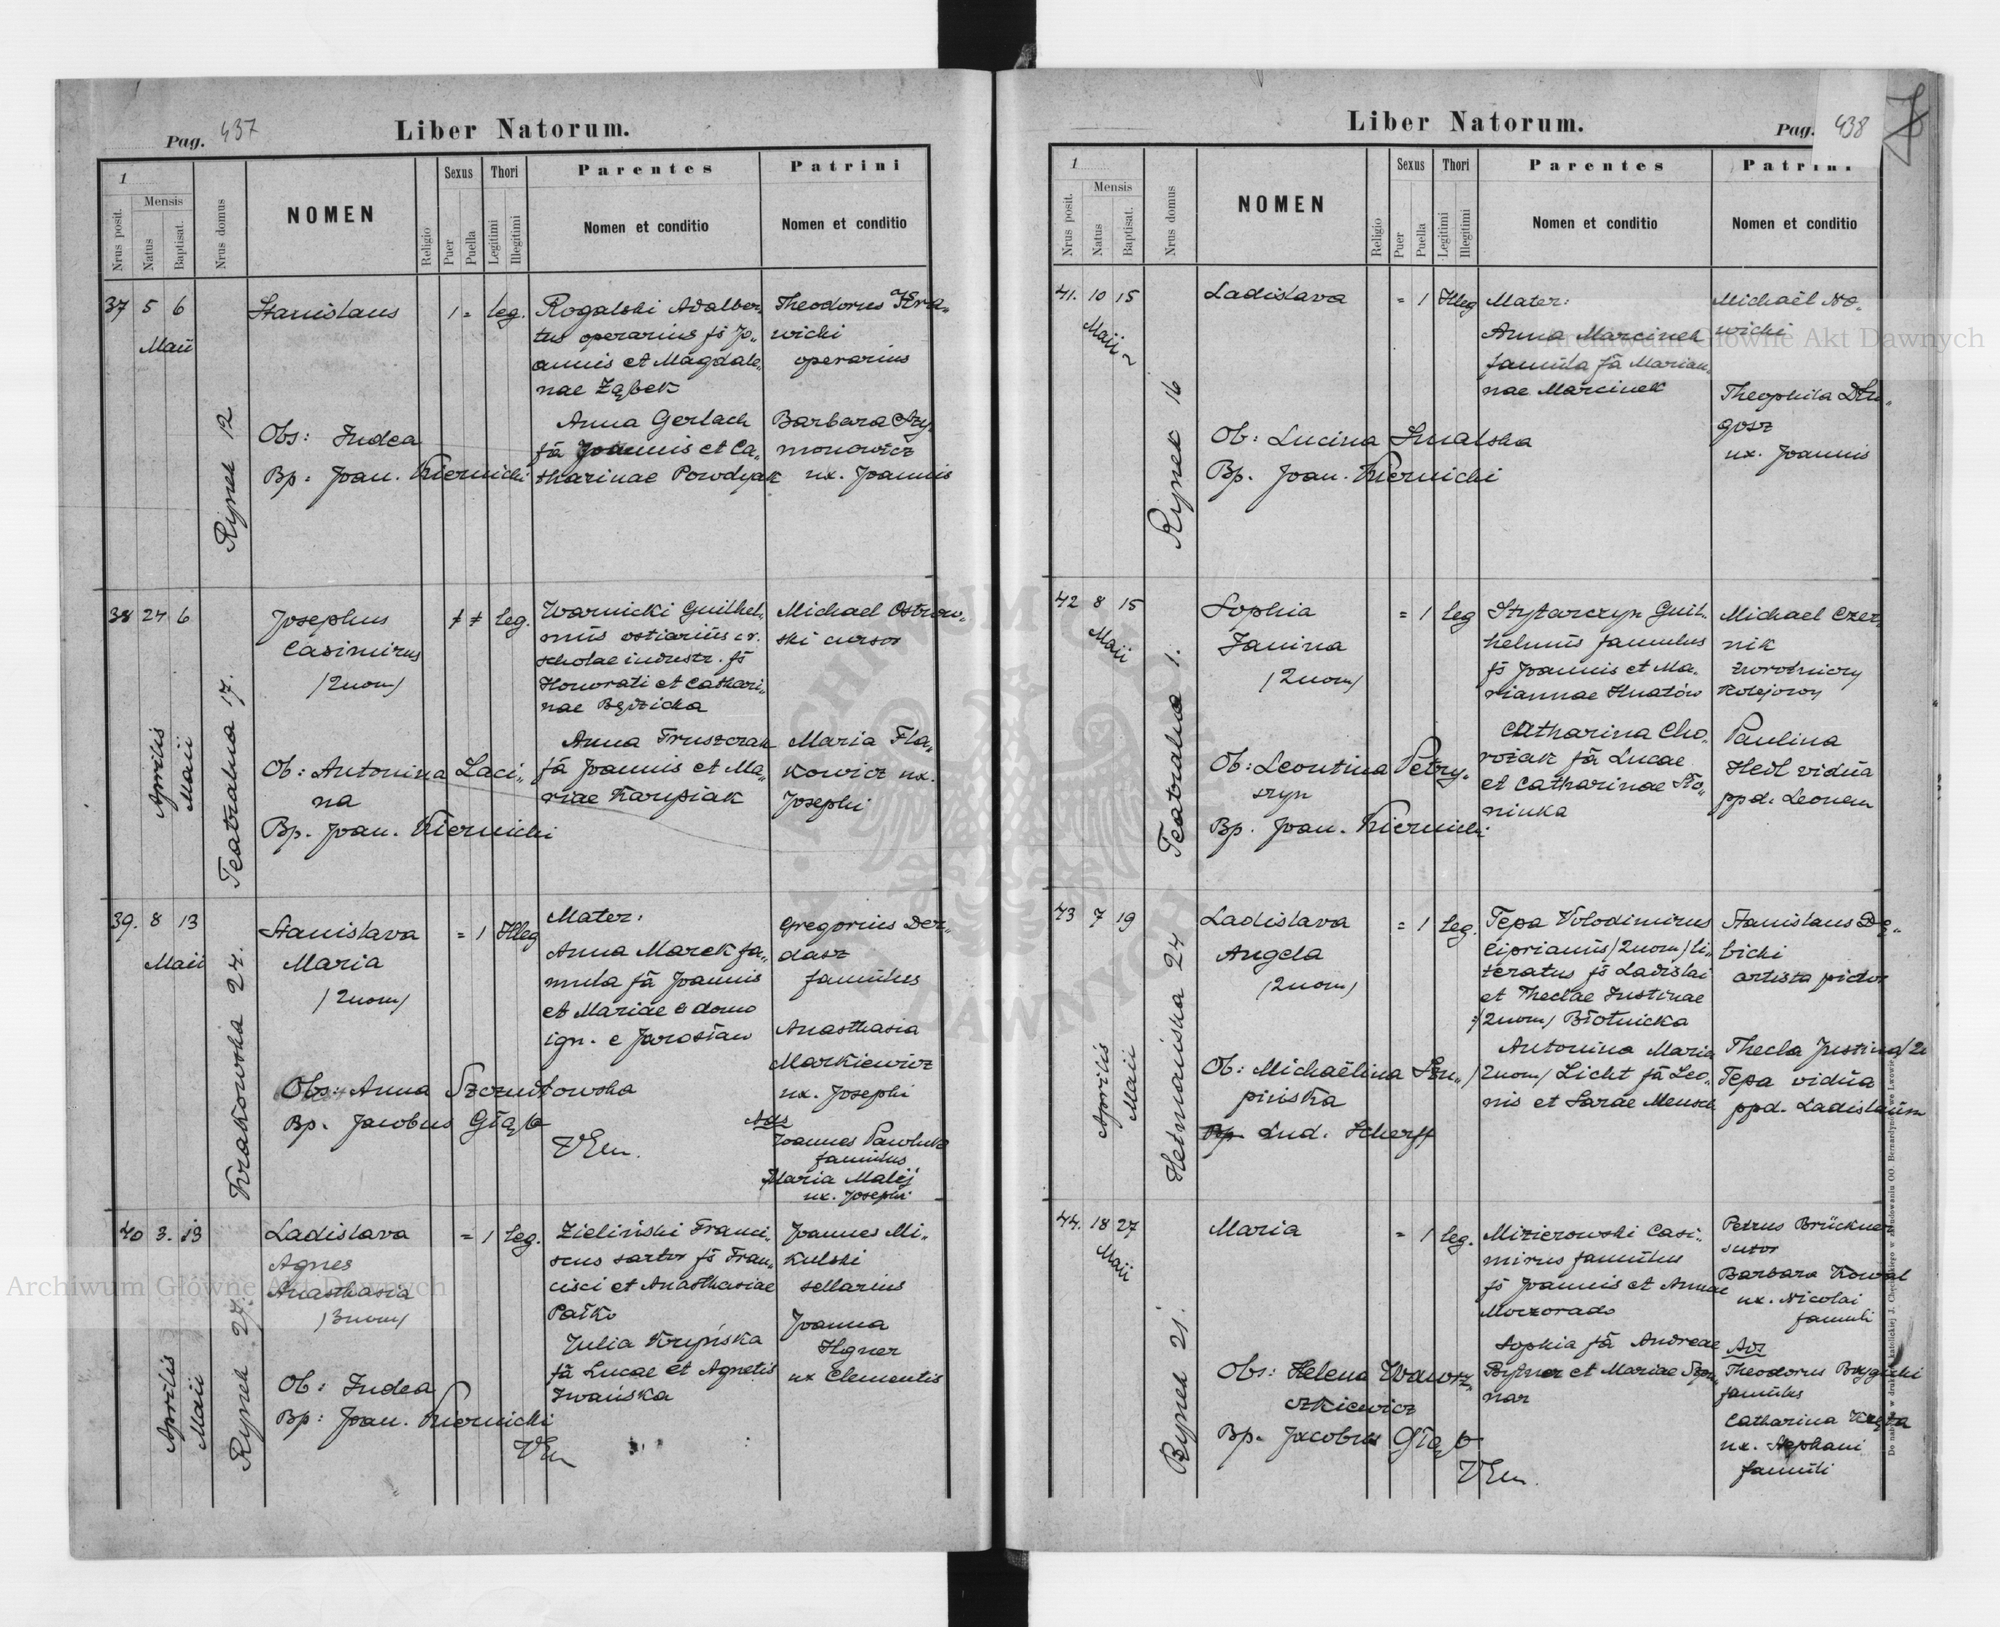 Pag. 437
Liber Natorum.
1
Nrus posit.
Mensis
Natus
Baptisat.
Nrus domus
NOMEN
Religio
Sexus
Puer
Puella
Thori
Legitimi
Illegitimi
Parentes
Nomen et conditio
Patrini
Nomen et conditio
37 5 6
Maii
Rynek 12
Stanislaus
Obs: Judea
Bp: Joan. Kiernicki
1 = leg.
Rogalski Adalber-
tus operarius fs Jo-
annis et Magdale-
nae Ząbek
Anna Gerlach
fa Joannis et Ca-
tharinae Powdyak
Theodorus
wicki
operarius
Barbara Szy-
monowicz
ux. Joannis
38 27 6
Aprilis
Maii
Teatralna 17.
Josephus
Casimirus
/2nom/
Ob: Antonina Laci-
na
Bp. Joan. Kiernicki
leg.
Warnicki Guilhel-
mus ostiarius cr.
scholae industr. fs
Honorati et Cathari-
nae
Anna Truszczak
fa Joannis et Ma-
riae Karpiak
Michael Ostrow-
ski cursor
Maria Fla-
kowicz ux.
Josephi
39. 8 13
Maii
Krakowska 27.
Stanislava
Maria
/2nom/
Obs: Anna Szczudłowska
Bp. Jacobus Głąb
= 1 Illeg
Mater:
Anna Marek fa-
mula fa Joannis
et Mariae e domo
ign. e Jarosław
VEn.
Gregorius Der-
dasz
famulus
Anasthasia
Markiewicz
ux. Josephi
Ads
Joannes Pawluk
famulus
Maria Malij
ux. Josephi
40 3. 13
Aprilis
Maii
Rynek 27.
Ladislava
Agnes
Anasthasia
/3nom/
Ob: Judea
Bp: Joan. Kiernicki
VEn
= 1 leg.
Zieliński Franci-
scus sartor fs Fran-
cisci et Anasthasiae
Pałko
Julia Krupińska
fa Lucae et Agnetis
Iwańska
Joannes Mi-
kulski
sellarius
Joanna
Ilgner
ux Clementis
Liber Natorum.
Pag. 438
1
Nrus posit.
Mensis
Natus
Baptisat.
Nrus domus
NOMEN
Religio
Sexus
Puer
Puella
Thori
Legitimi
Illegitimi
Parentes
Nomen et conditio
Patrini
Nomen et conditio
41. 10 15
Maii
Rynek 16
Ladislava
Ob: Lucina Smalska
Bp. Joan. Kiernicki
= 1 Illeg
Mater:
Anna Marcinek
famula fa Marian-
nae Marcinek
Michaël No-
wicki
Theophila Dłu-
gosz
ux. Joannis
42 8 15
Maii
Teatralna 1.
Sophia
Janina
/2nom/
Ob: Leontina Petry-
szyn
Bp. Joan. Kiernicki
= 1 leg
Stytarczyn Guil-
helmus famulus
fs Joannis et Ma-
riannae Hnatów
Catharina Cho-
rożak fa Lucae
et Catharinae Sło-
ninka
Michael Czer-
nik
zwrotniczy
kolejowy
Paulina
Heil vidua
ppd. Leonem
43 7 19
Aprilis
Maii
Hetmańska 24
Ladislava
Angela
/2nom/
Ob: Michaëlina Szu-
pińska
Bp Lud. Scherff
= 1 leg.
Tepa Volodimirus
Ciprianus /2nom/ li-
teratus fs Ladislai
et Theclae Justinae
/2nom/ Błotnicka
Antonina Maria
/2nom/ Licht fa Leo-
nis et Sarae Mensch
Stanislaus Dę-
bicki
artista pictor
Thecla Justina /2
Tepa vidua
ppd. Ladislaum
44. 18 27
Maii
Rynek 21.
Maria
Obs: Helena Wawrz-
czkiewicz
Bp. Jacobus Głąb
VEn.
= 1 leg.
Mizierowski Casi-
mirus famulus
fs Joannis et Annae
Moczorado
Sophia fa Andreae
Bytner et Mariae
nar
Petrus Brückner
sutor
Barbara Kowal
ux. Nicolai
famuli
Ads
Theodorus
famulus
Catharina
ux. Stephani
famuli
Archiwum Główne Akt Dawnych
Archiwum Główne Akt Dawnych